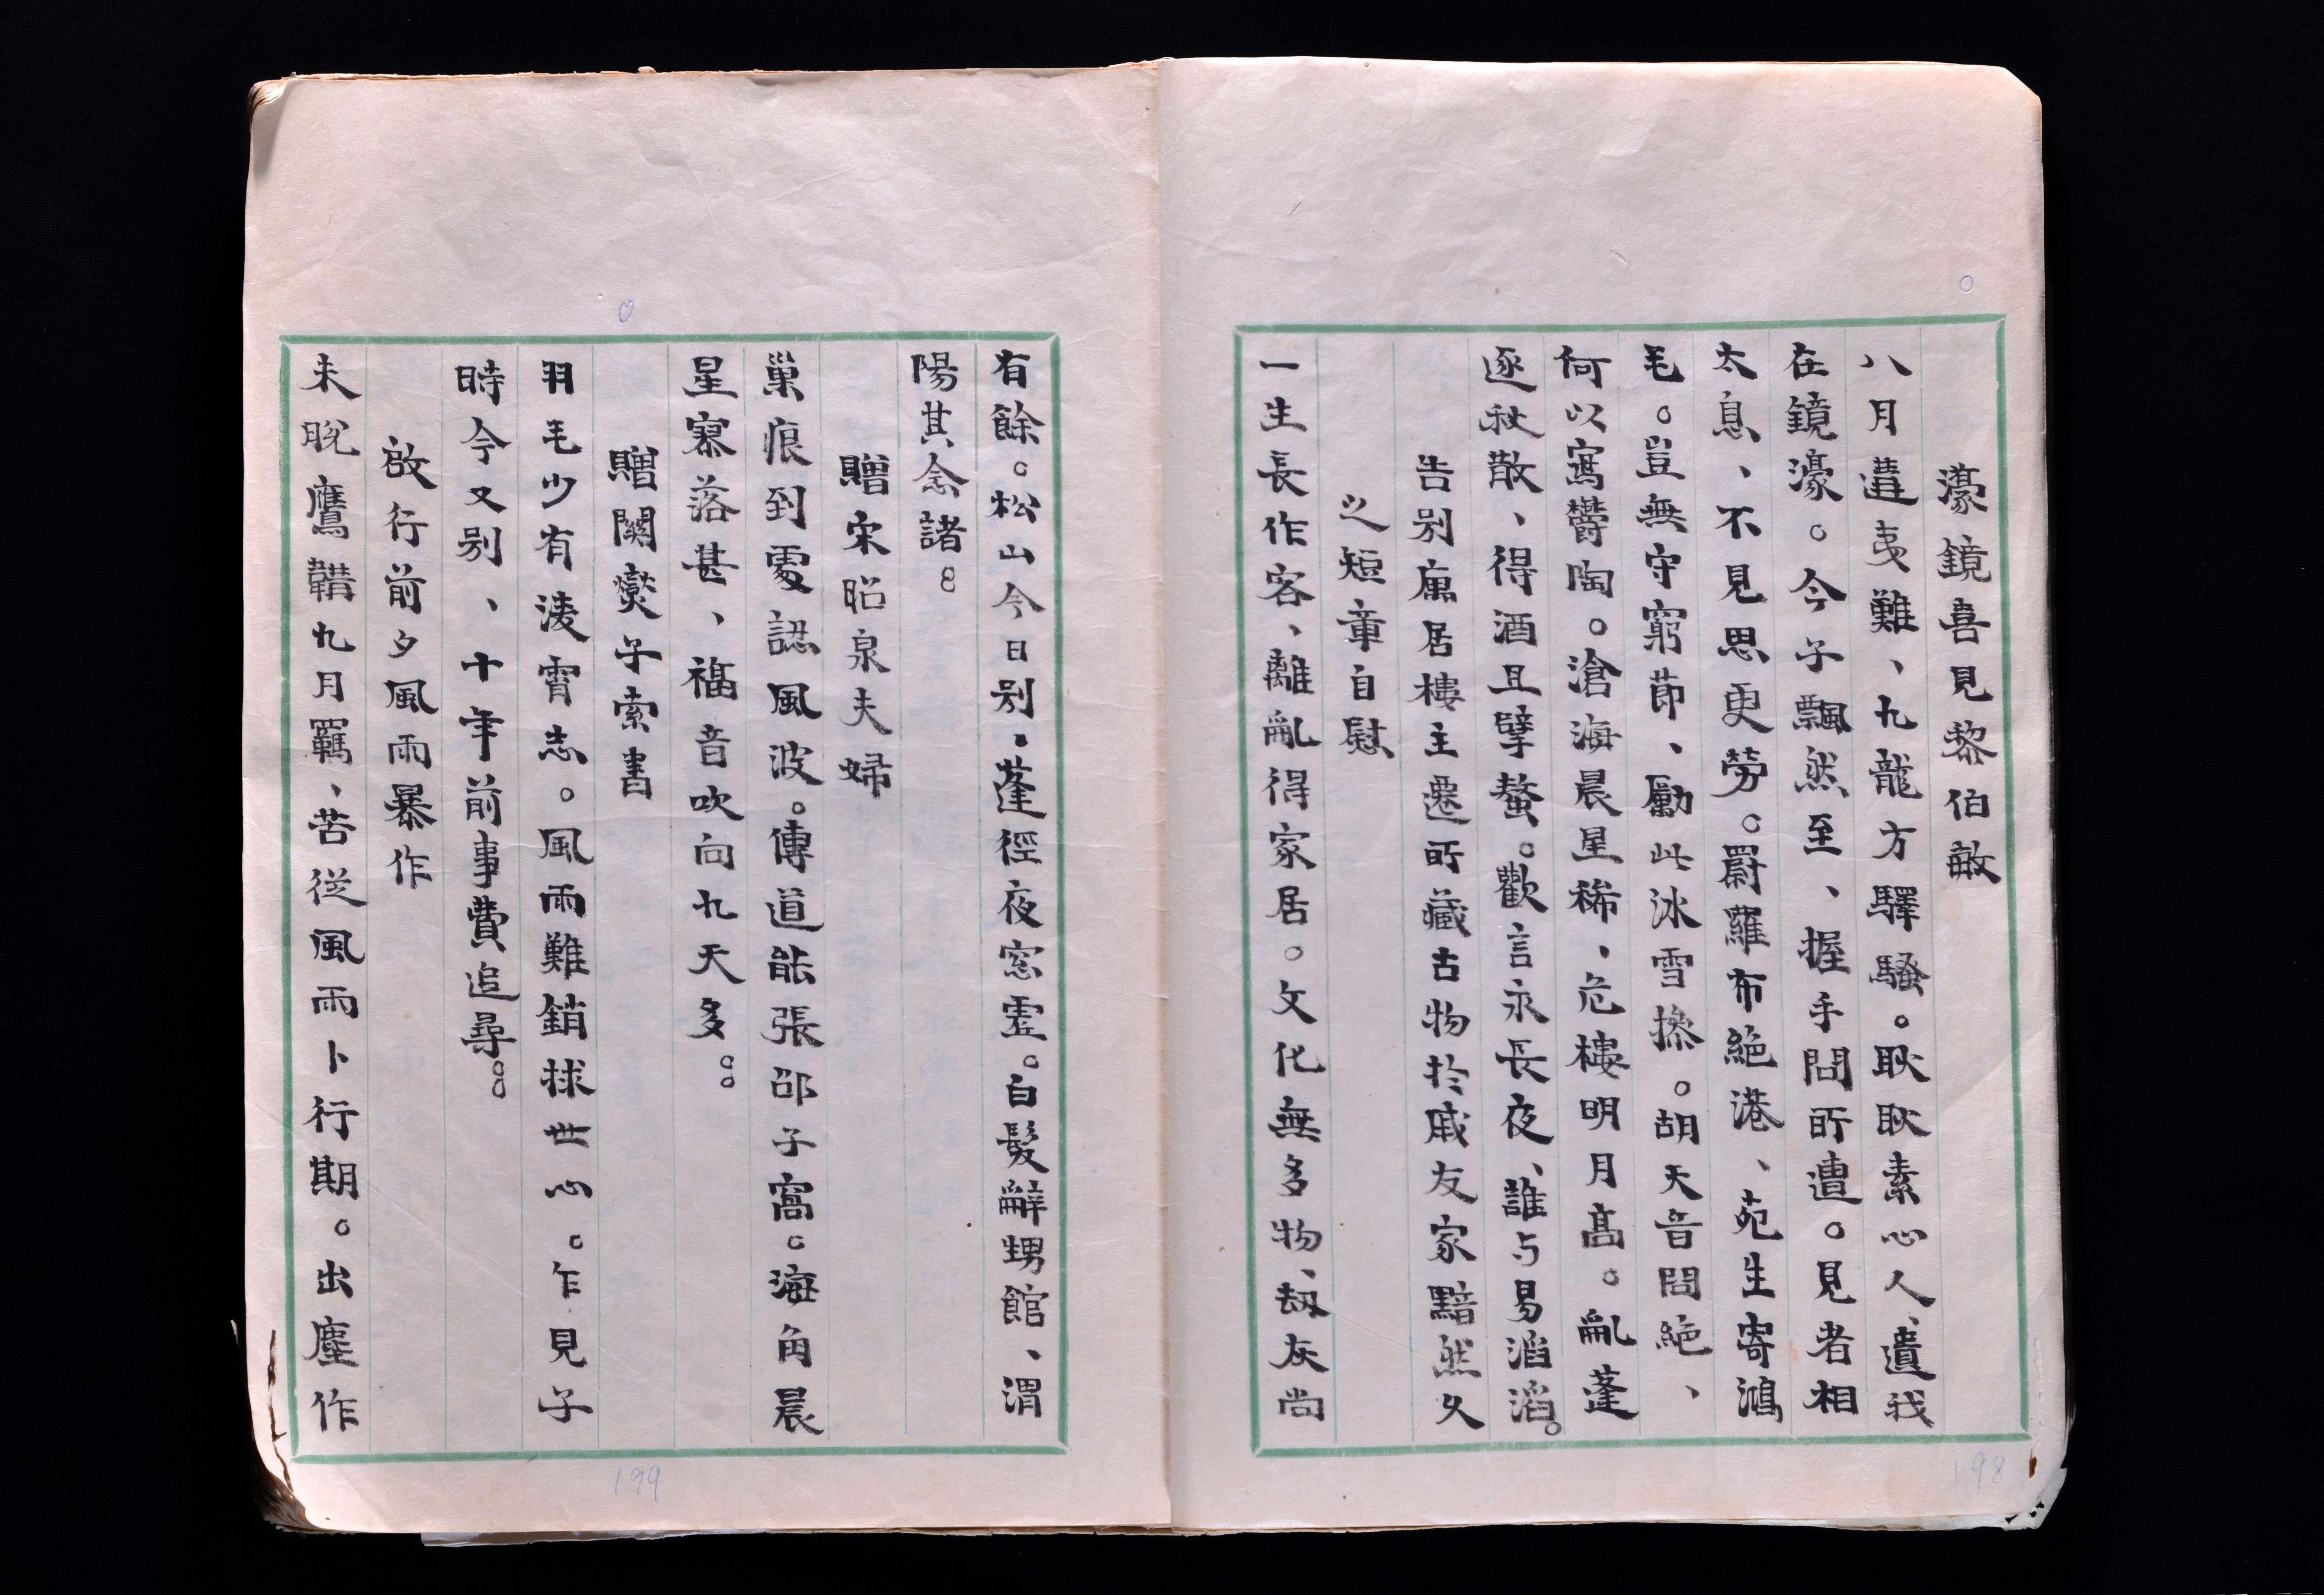 濠鏡喜見黎伯敵
八月遘夷難、九龍方驛騷。耿耿素心人、遺我
在鏡濠。今子飄然至、握手問所遭。見者相
太息、不見思更勞。罻羅布絕港、苑生寄鴻
毛。豈無守窮節、勵此冰雪摻。胡天音問絕、
何以寫鬱陶。滄海晨星稀、危樓明月高。亂蓬
逐秋散、得酒且擘螯。歡言永長夜、誰与易滔滔。
告別廡居樓主遷所藏古物於戚友家黯然久
之短章自慰
一生長作客、離亂得家居。文化無多物、劫灰尚
198
有餘。松山今日別、蓬徑夜窓虛。白髮辭甥館、渭
陽其念諸。
贈宋昭泉夫婦
巢痕到處認風波。傳道能張邵子窩。海角晨
星寥落甚、福音吹向九天多。
贈闕爕子索書
羽毛少有淩霄志。風雨難銷捄世心。乍見子
時今又別、十年前事費追尋。
啟行前夕風雨暴作
未脫鷹鞲九月羈、苦從風雨卜行期。出塵作
199